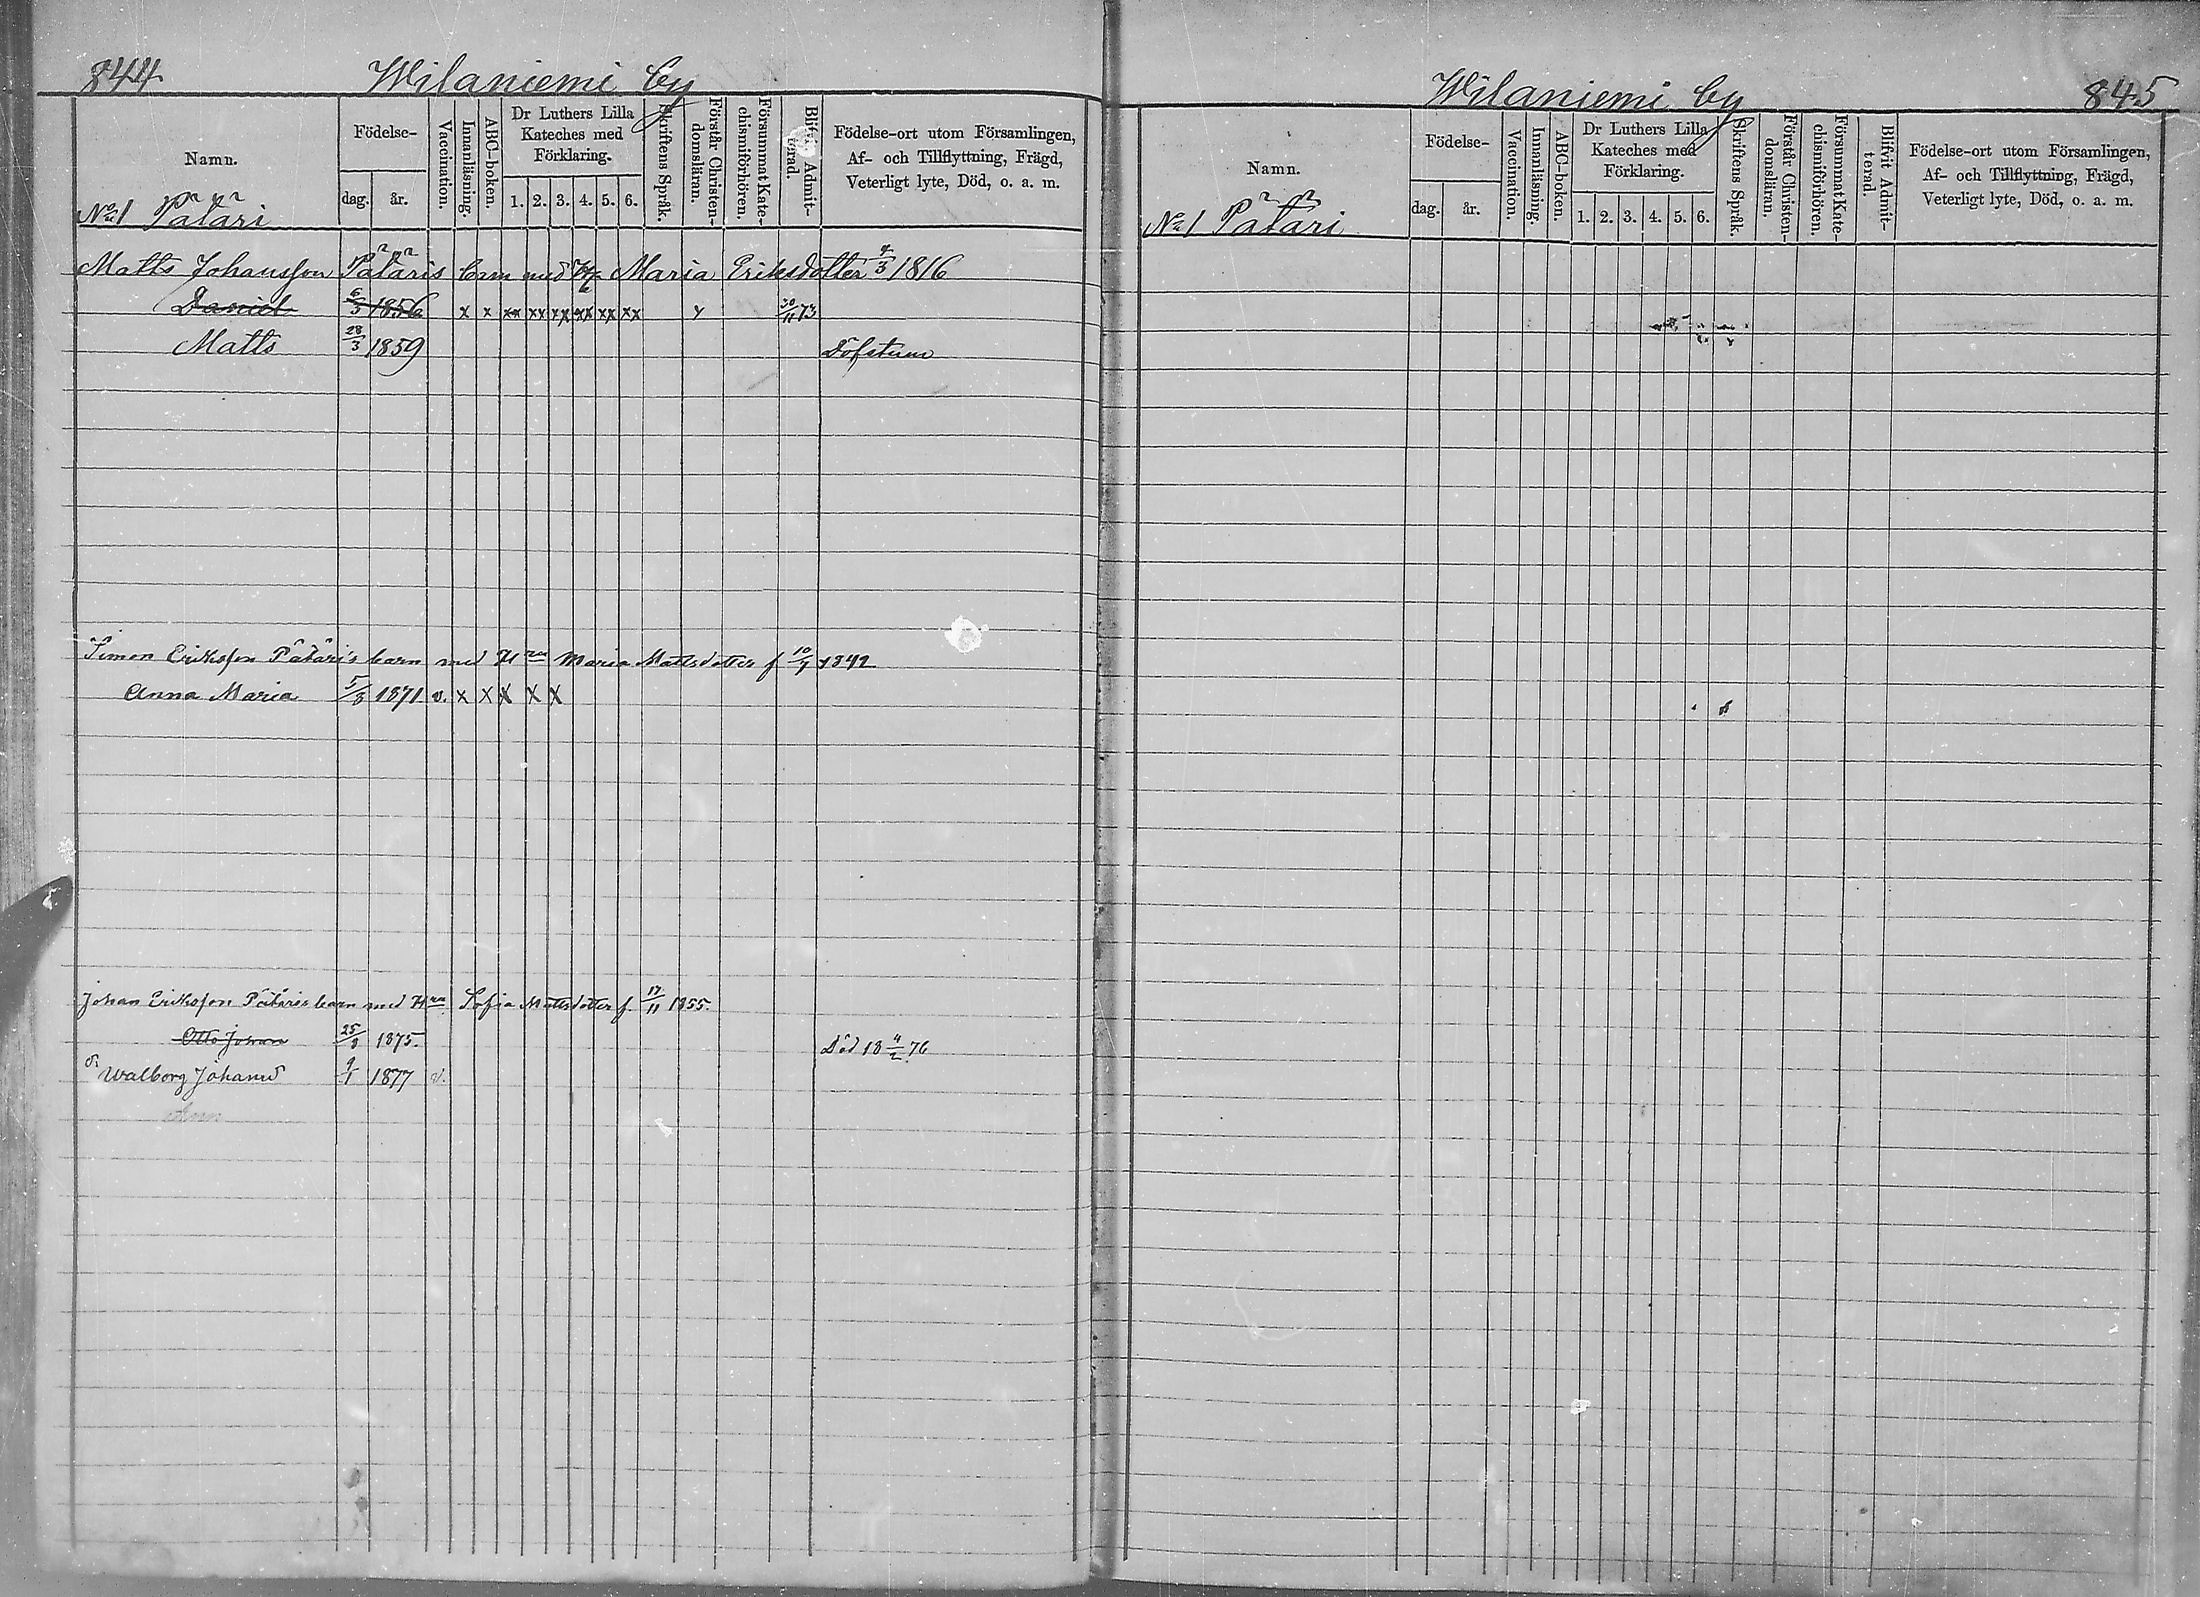 844 Wilaniemi by
Namn. Födelse- dag. år. Vaccination. Innanläsning. ABC-boken. Dr Luthers Lilla Kateches med Förklaring. 1. 2. 3. 4. 5. 6. Skriftens Språk. Förstår Christendomsläran. Försummat Katechismiförhören. Blifvit Admitterad. Födelse-ort utom Församlingen, Af- och Tillflyttning, Frägd, Veterligt lyte, Död, o. a. m.
No 1 Pätäri
Matts Johansson Pätäris barn med Maria Eriksdotter 4/3 1816
Daniel 6/3 1856 x x xx xx xx xx xx xx x 30/11 73
Matts 28/3 1859 Döfstum
Simon Eriksson Pätäri's barn med Hru Maria Mattsdotter f 10/7 1842
Anna Maria 5/8 1871. v. x x x x x
Johan Eriksson Pätäris barn med Hru Sofia Mattsdotter f. 17/11 1855.
Otto Johan 25/8 1875. Död 18 4/2 76
Walborg Johanna 9/1 1877 v.
Wilaniemi by 845
Namn. Födelse- dag. år. Vaccination. Innanläsning. ABC-boken. Dr Luthers Lilla Kateches med Förklaring. 1. 2. 3. 4. 5. 6. Skriftens Språk. Förstår Christendomsläran. Försummat Katechismiförhören. Blifvit Admitterad. Födelse-ort utom Församlingen, Af- och Tillflyttning, Frägd, Veterligt lyte, Död, o. a. m.
No 1 Pätäri